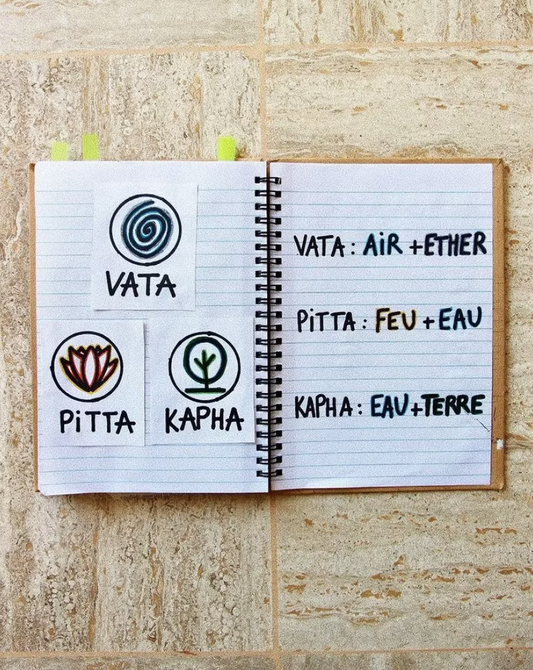 VATA
PiTTA
KAPHA
VATA: AiR +ETHER
PiTTA: FEU + EAU
KAPHA: EAU+TERRE